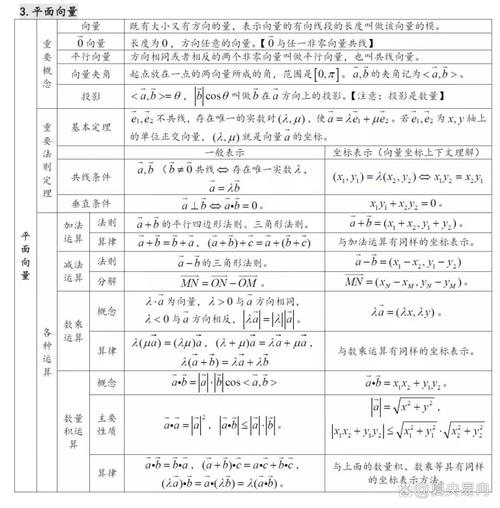 3.平面向量
平面向量
重要概念
向量 既有大小又有方向的量，表示向量的有向线段的长度叫做该向量的模。
0⃗向量 长度为0，方向任意的向量。【0⃗与任一非零向量共线】
平行向量 方向相同或者相反的两个非零向量叫做平行向量，也叫共线向量。
向量夹角 起点放在一点的两向量所成的角，范围是[0,π]。a⃗,b⃗的夹角记为<a⃗,b⃗>。
投影 <a⃗,b⃗>=θ，|b⃗|cosθ叫做b⃗在a⃗方向上的投影。【注意：投影是数量】
重要法则定理
基本定理 e⃗₁,e⃗₂不共线，存在唯一的实数对(λ,μ)，使a⃗=λe⃗₁+μe⃗₂。若e⃗₁,e⃗₂为x,y轴上
的单位正交向量，(λ,μ)就是向量a⃗的坐标。
一般表示 坐标表示（向量坐标上下文理解）
共线条件 a⃗,b⃗（b⃗≠0⃗共线⇔存在唯一实数λ，
a⃗=λb⃗ (x₁,y₁)=λ(x₂,y₂)⇔x₁y₂=x₂y₁
垂直条件 a⃗⊥b⃗⇔a⃗•b⃗=0。 x₁y₁+x₂y₂=0。
各种运算
加法运算
法则 a⃗+b⃗的平行四边形法则、三角形法则。 a⃗+b⃗=(x₁+x₂,y₁+y₂)。
算律 a⃗+b⃗=b⃗+a⃗，(a⃗+b⃗)+c⃗=a⃗+(b⃗+c⃗) 与加法运算有同样的坐标表示。
减法运算
法则 a⃗−b⃗的三角形法则。 a⃗−b⃗=(x₁−x₂,y₁−y₂)
分解 MN⃗=ON⃗−OM⃗。 MN⃗=(x_N−x_M,y_N−y_M)。
数乘运算
概念 λ•a⃗为向量，λ>0与a⃗方向相同，
λ<0与a⃗方向相反，|λa⃗|=|λ||a⃗|。 λa⃗=(λx,λy)。
算律 λ(μa⃗)=(λμ)a⃗，(λ+μ)a⃗=λa⃗+μa⃗，
λ(a⃗+b⃗)=λa⃗+λb⃗ 与数乘运算有同样的坐标表示。
数量积运算
概念 a⃗•b⃗=|a⃗|•|b⃗|cos<a⃗,b⃗> a⃗•b⃗=x₁x₂+y₁y₂。
主要性质 a⃗•a⃗=|a⃗|²，|a⃗•b⃗|≤|a⃗|•|b⃗|。 |a⃗|=√(x²+y²)，
|x₁x₂+y₁y₂|≤√(x₁²+y₁²)•√(x₂²+y₂²)
算律 a⃗•b⃗=b⃗•a⃗，(a⃗+b⃗)•c⃗=a⃗•c⃗+b⃗•c⃗，
(λa⃗)•b⃗=a⃗•(λb⃗)=λ(a⃗•b⃗)。 与上面的数量积、数乘等具有同样
的坐标表示方法。